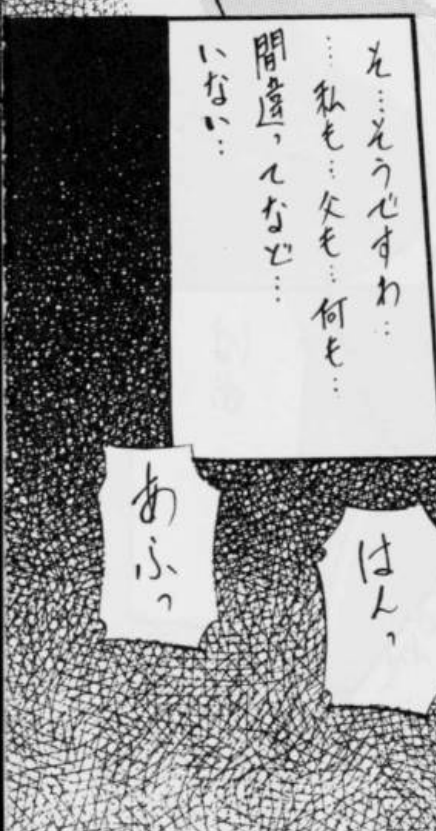 そ…そうですわ…
…私も…父も…何も…
間違ってなど…
いない…
はんっ
あふっ